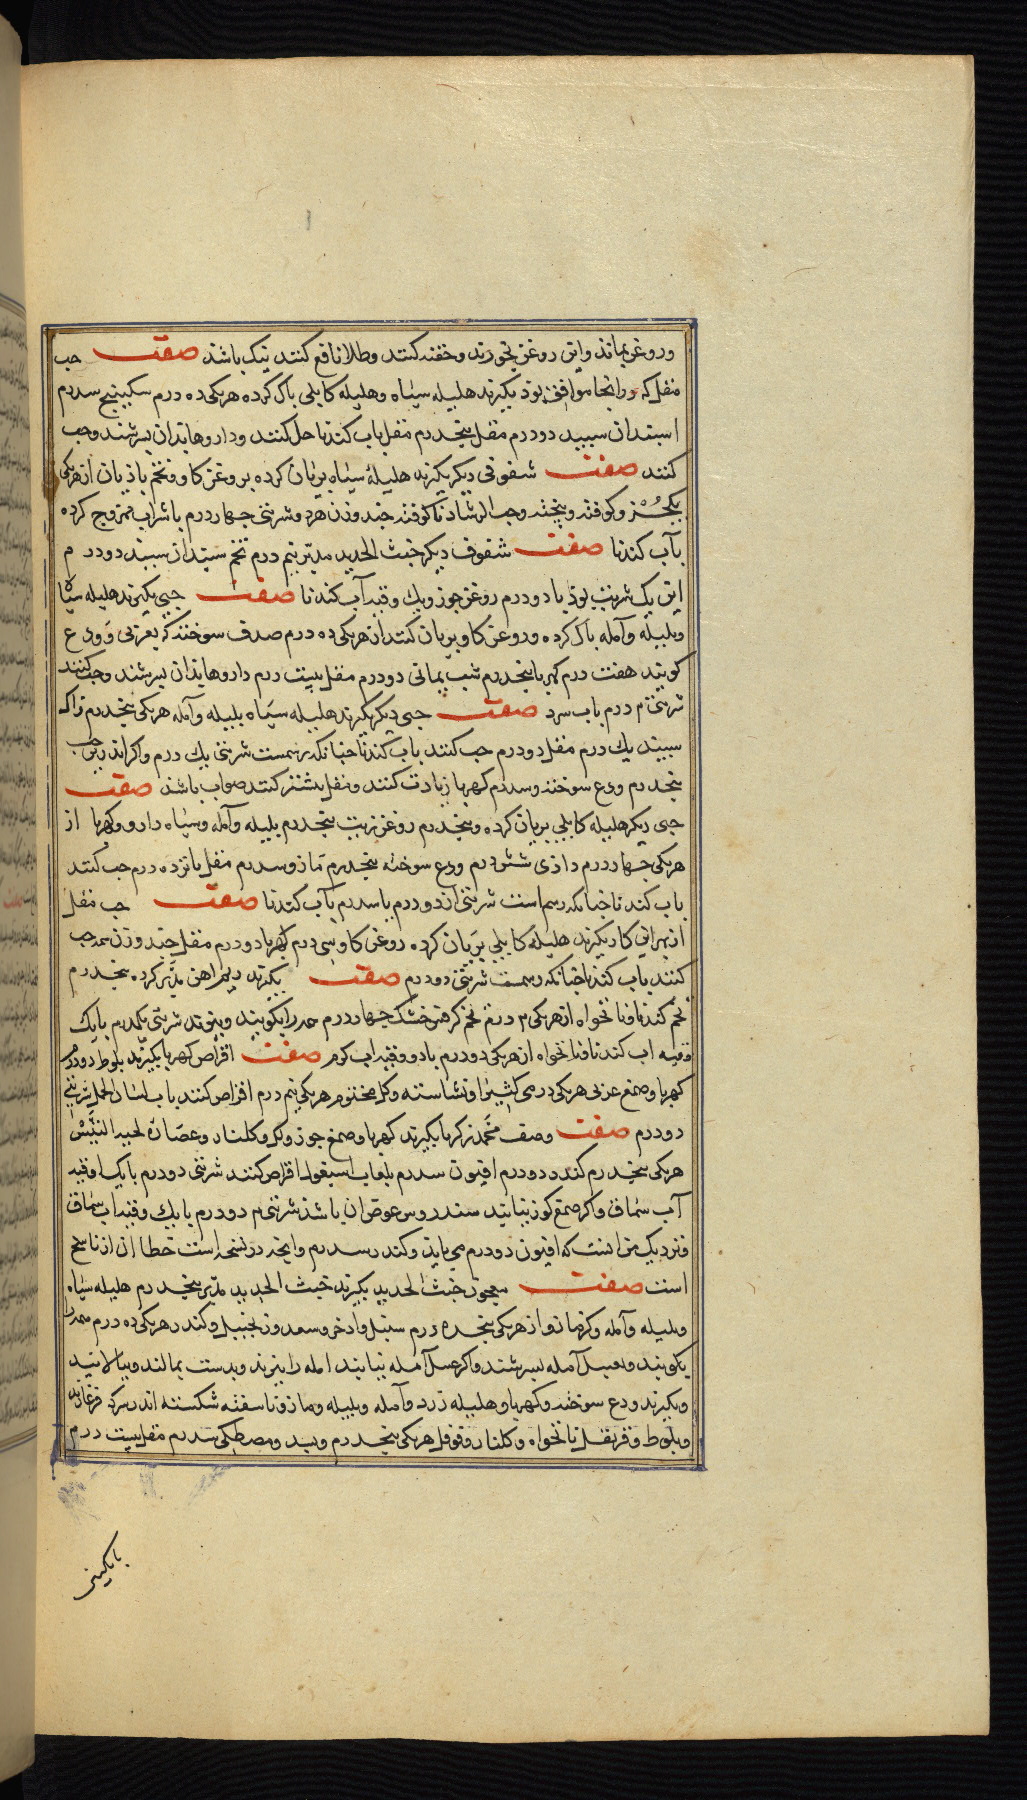 و روغن بماند و این روغن بخورند و حقنه کنند و طلا نافع کنند نیک باشد صفت حب
مقل که ورا نجا موافق بود بگیرند هلیله سیاه و هلیله کابلی پاک کرده هریکی ده درم سکبینج سدرم
اسبندان سبید دو درم مقل پنجدرم مقل باب کندنا حل کنند و داروها بدان بسرشند و حب
کنند صفت شفوفی دیگر بگیرند هلیلهٔ سیاه بریان کرده بروغن کاو و تخم بادیان از هریکی
یکجُزو کوفته و بیخته و حب الرشاد ناکوفته چند وزن هردو شربتی چهاردرم با شراب ممزوج کرده
بآب کندنا صفت شفوف دیگر خبث الحدید مدبّر نیم درم تخم سبندان سبید دو درم
این یک شربت بود یا دو درم روغن جوز و یک وقیه آب کندنا صفت حبی بگیرند هلیله سیاه
و بلیله و آمله پاک کرده و روغن کاو بریان کنند از هریکی ده درم صدف سوخته که بعربی وَدَع
کویند هفت درم کهربا پنجدرم شب یمانی دو درم مقل بیست درم داروها بدان بسرشند و حب کنند
شربتی م درم باب سرد صفت حبی دیگر بگیرند هلیله سیاه بلیله و آمله هریکی پنجدرم تراک
سبید یک درم مقل دو درم حب کنند باب کندنا جنانکه رسمست شربتی یک درم و اکر اندرین حب
پنجدرم ودع سوخته و سدرم کهربا زیادت کنند و مقل بیشتر کنند صواب باشد صفت
حبی دیگر هلیله کابلی بریان کرده و پنجدرم روغن زیت پنجدرم بلیله و آمله و سیاه دارو و کهربا از
هریکی چهاردرم داذی شش درم ودع سوخته پنجدرم مازو سدرم مقل پانزده درم حب کنند
باب کندنا جنانکه رسم است شربتی از دو درم یا سدرم بآب کندنا صفت حب مقل
از بهر این کار بگیرند هلیلهٔ کابلی بریان کرده روغن کاو سی درم کهربا دو درم مقل چند وزن همه حب
کنند باب کندنا جنانکه رسمست شربتی دو درم صفت بگیرند ریم اهن مدبّر کرده پنجدرم
تخم کندنا و نانخواه از هریکی م درم تخم کرفس خشک چهاردرم همه را بکوبند و بپزند شربتی یکدرم بایک
وقیه اب کندنا و نانخواه از هریکی دو درم با دو وقیه اب کرم صفت اقراص کهربا بگیرند بلوط دو درم
کهربا و صمغ عربی هریکی درمی کثیرا و نشاسته و کل مختوم هریکی نیم درم اقراص کنند باب لسان الحمل شربتی
دو درم صفت وصف محمد زکریا بگیرند کهربا و صمغ جوز و لک و کلنار و عصارهٔ لحیه التیس
هریکی پنجدرم کندر دو درم افیون سدرم بلعاب اسبغول اقراص کنند شربتی دو درم بایک اوقیه
آب سماق و اکر صمغ کوز نیابند سندروس عوض ان باشد شربتی م دو درم بایک وقیه اب سماق
و نزدیک من انست که افیون دو درم می باید و کندر سدرم و اینچه در نسخه است خطا ان از ناسخ
است صفت معجون خبث الحدید بگیرند خبث الحدید مدبّر پنجدرم هلیله سیاه
و بلیله و آمله و کزمازو از هریکی پنجدهٔ درم سنبل و اذخر و سعد و زنجبیل و کندر هریکی ده درم همه را
بکوبند و بعسل آمله بسرشند و اکر عسل آمله نیابند امله را بپزند و بدست بمالند و ببالایند
و بگیرند ودع سوخته و کهربا و هلیله زرد و آمله و بلیله و مازو ناسفته شکسته اندر سرکه فرغارده
و بلوط و قرنفل نانخواه و کلنار و فوفل هریکی پنجدرم و بسد و مصطکی سدرم مقل بیست درم
بانکبین